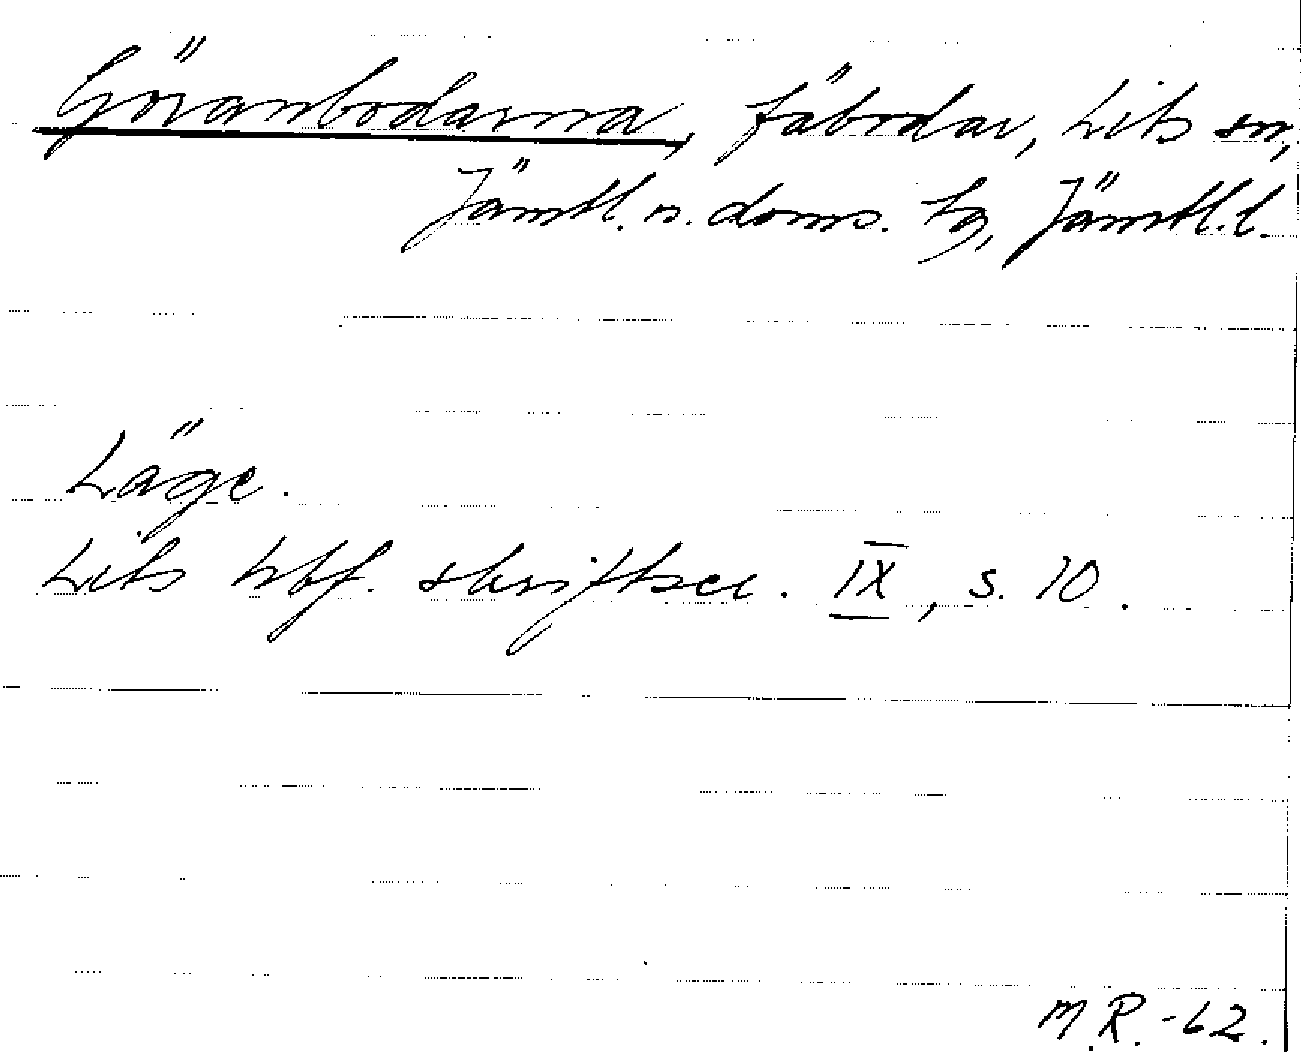 Göranbodarna, fäbodar, Lits sn,
Jämtl. n. doms. tg, Jämtl. l.
Läge.
Lits hbf. skriftser. IX, s. 10.
M.R. -62.